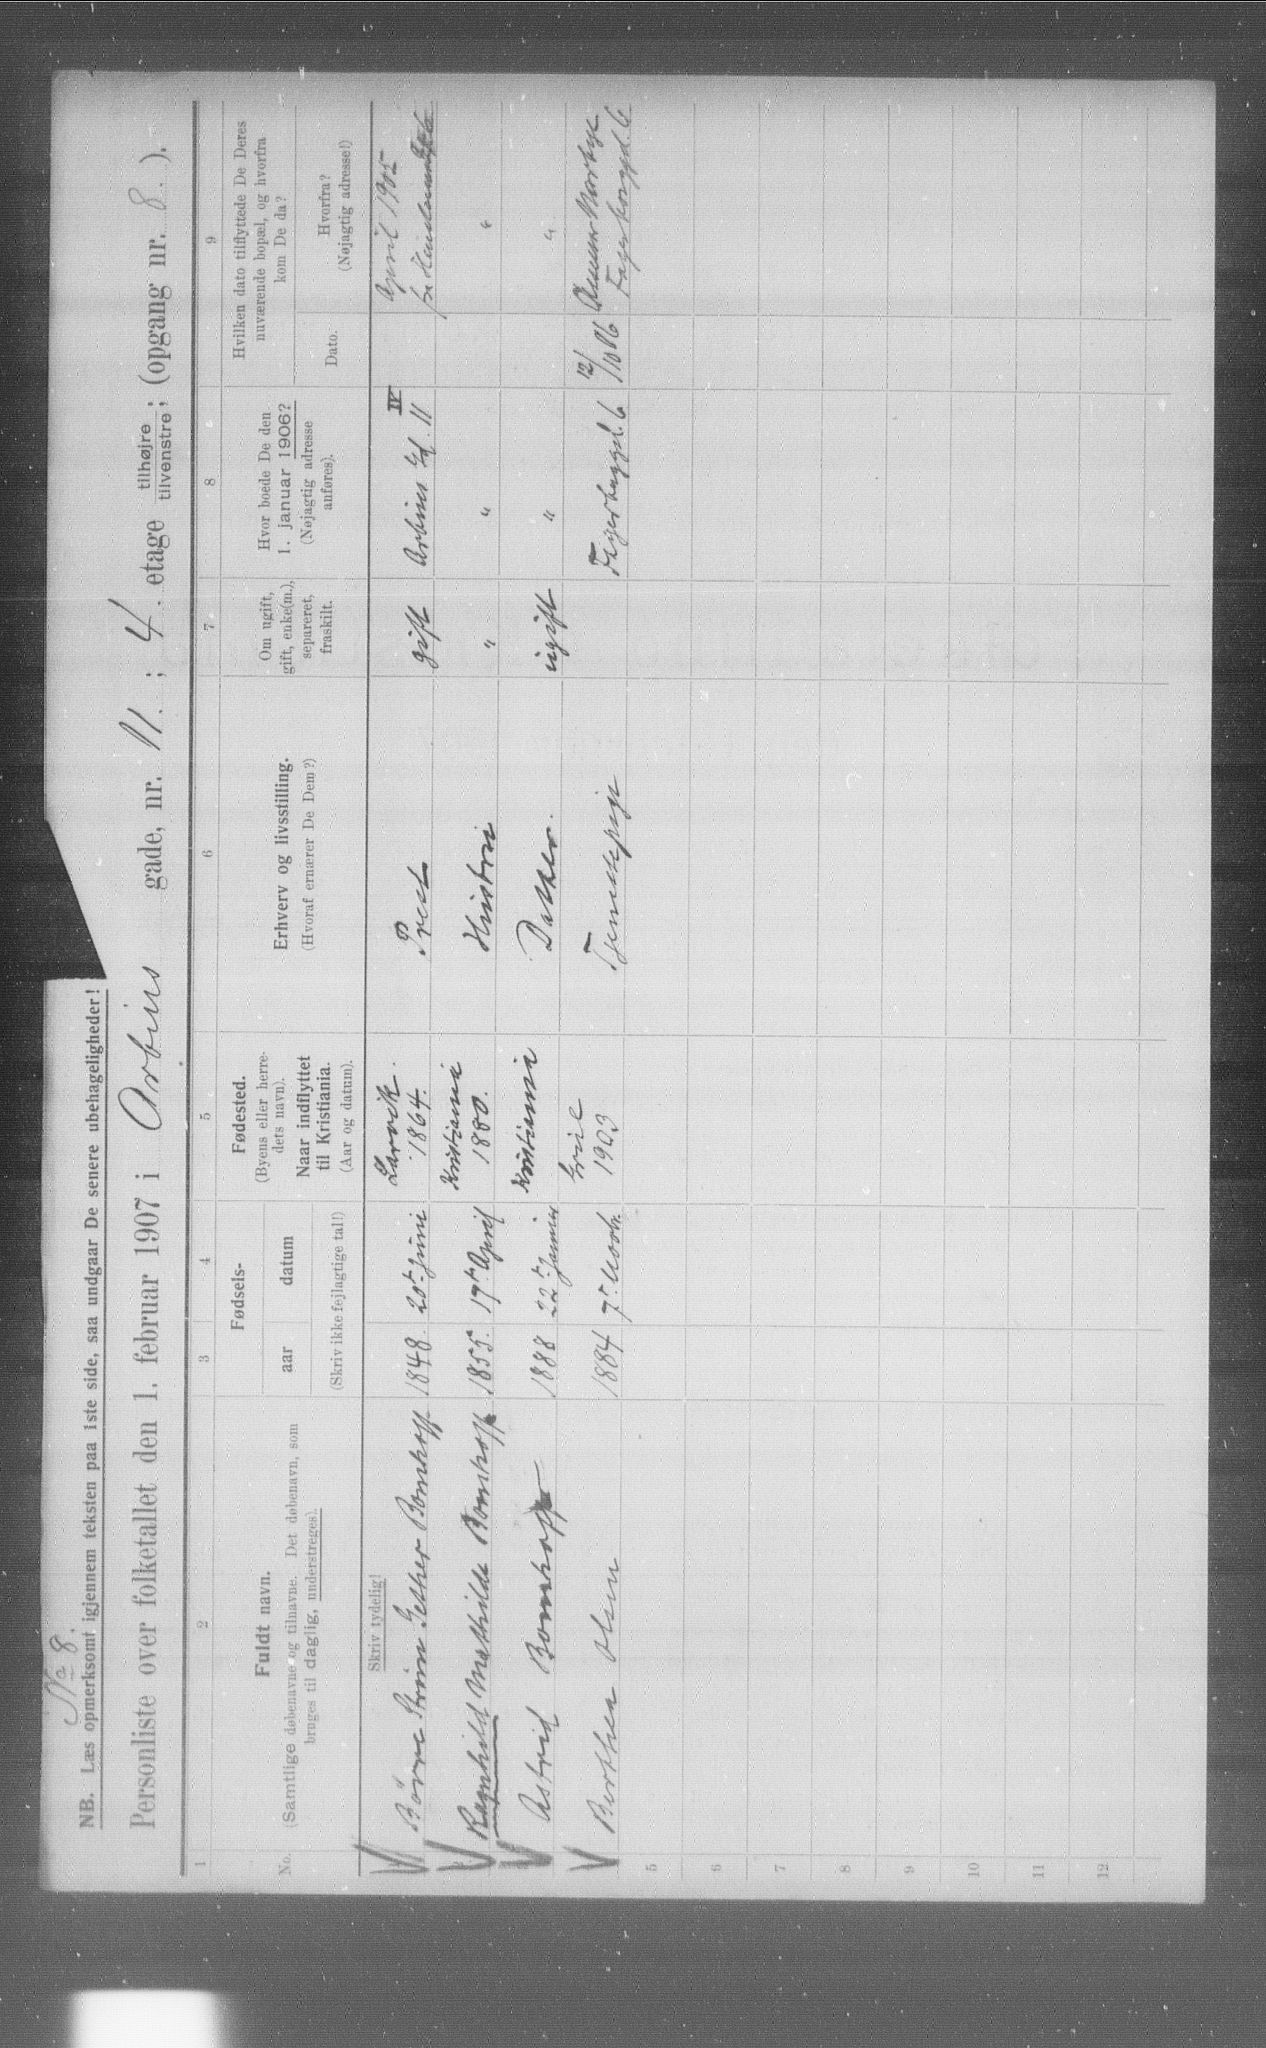 No 8.
NB. Læs opmerksomt igjennem teksten paa 1ste side, saa undgaar De senere ubehageligheder!
Personliste over folketallet den 1. februar 1907 i Arbins gade, nr. 11. ; 4. etage tilhøjre tilvenstre ; (opgang nr. 8. ).
1 2 3 4 5 6 7 8 9
No.
Fuldt navn.
(Samtlige døbenavne og tilnavne. Det døbenavn, som
bruges til daglig, understreges).
Fødsels-
aar datum
(Skriv ikke fejlagtige tal!)
Fødested.
(Byens eller herre-
dets navn).
Naar indflyttet
til Kristiania.
(Aar og datum).
Erhverv og livsstilling.
(Hvoraf ernærer De Dem?)
Om ugift,
gift, enke(m.),
separeret,
fraskilt.
Hvor boede De den
1. januar 1906?
(Nøjagtig adresse
anføres).
Hvilken dato tilflyttede De Deres
nuværende bopæl, og hvorfra
kom De da?
Dato.
Hvorfra?
(Nøjagtig adresse!)
Skriv tydelig!
Børre Strøm Gether Bomhoff 1848. 20de Juni Larvik. 1864. Prest gift Arbins Gd. 11 IV April 1905
Ragnhild Mathilde Bomhoff 1855. 17de April Kristiania 1880. Hustru " " "
Astrid Bomhoff 1888 22de Januar Kristiania Datter. ugift " "
Berthea Olsen 1884 7de Novbr. 1903 Tjenestepige Fagerborggd. 6 12/10 06 Fagerborggd. 6
5
6
7
8
9
10
11
12